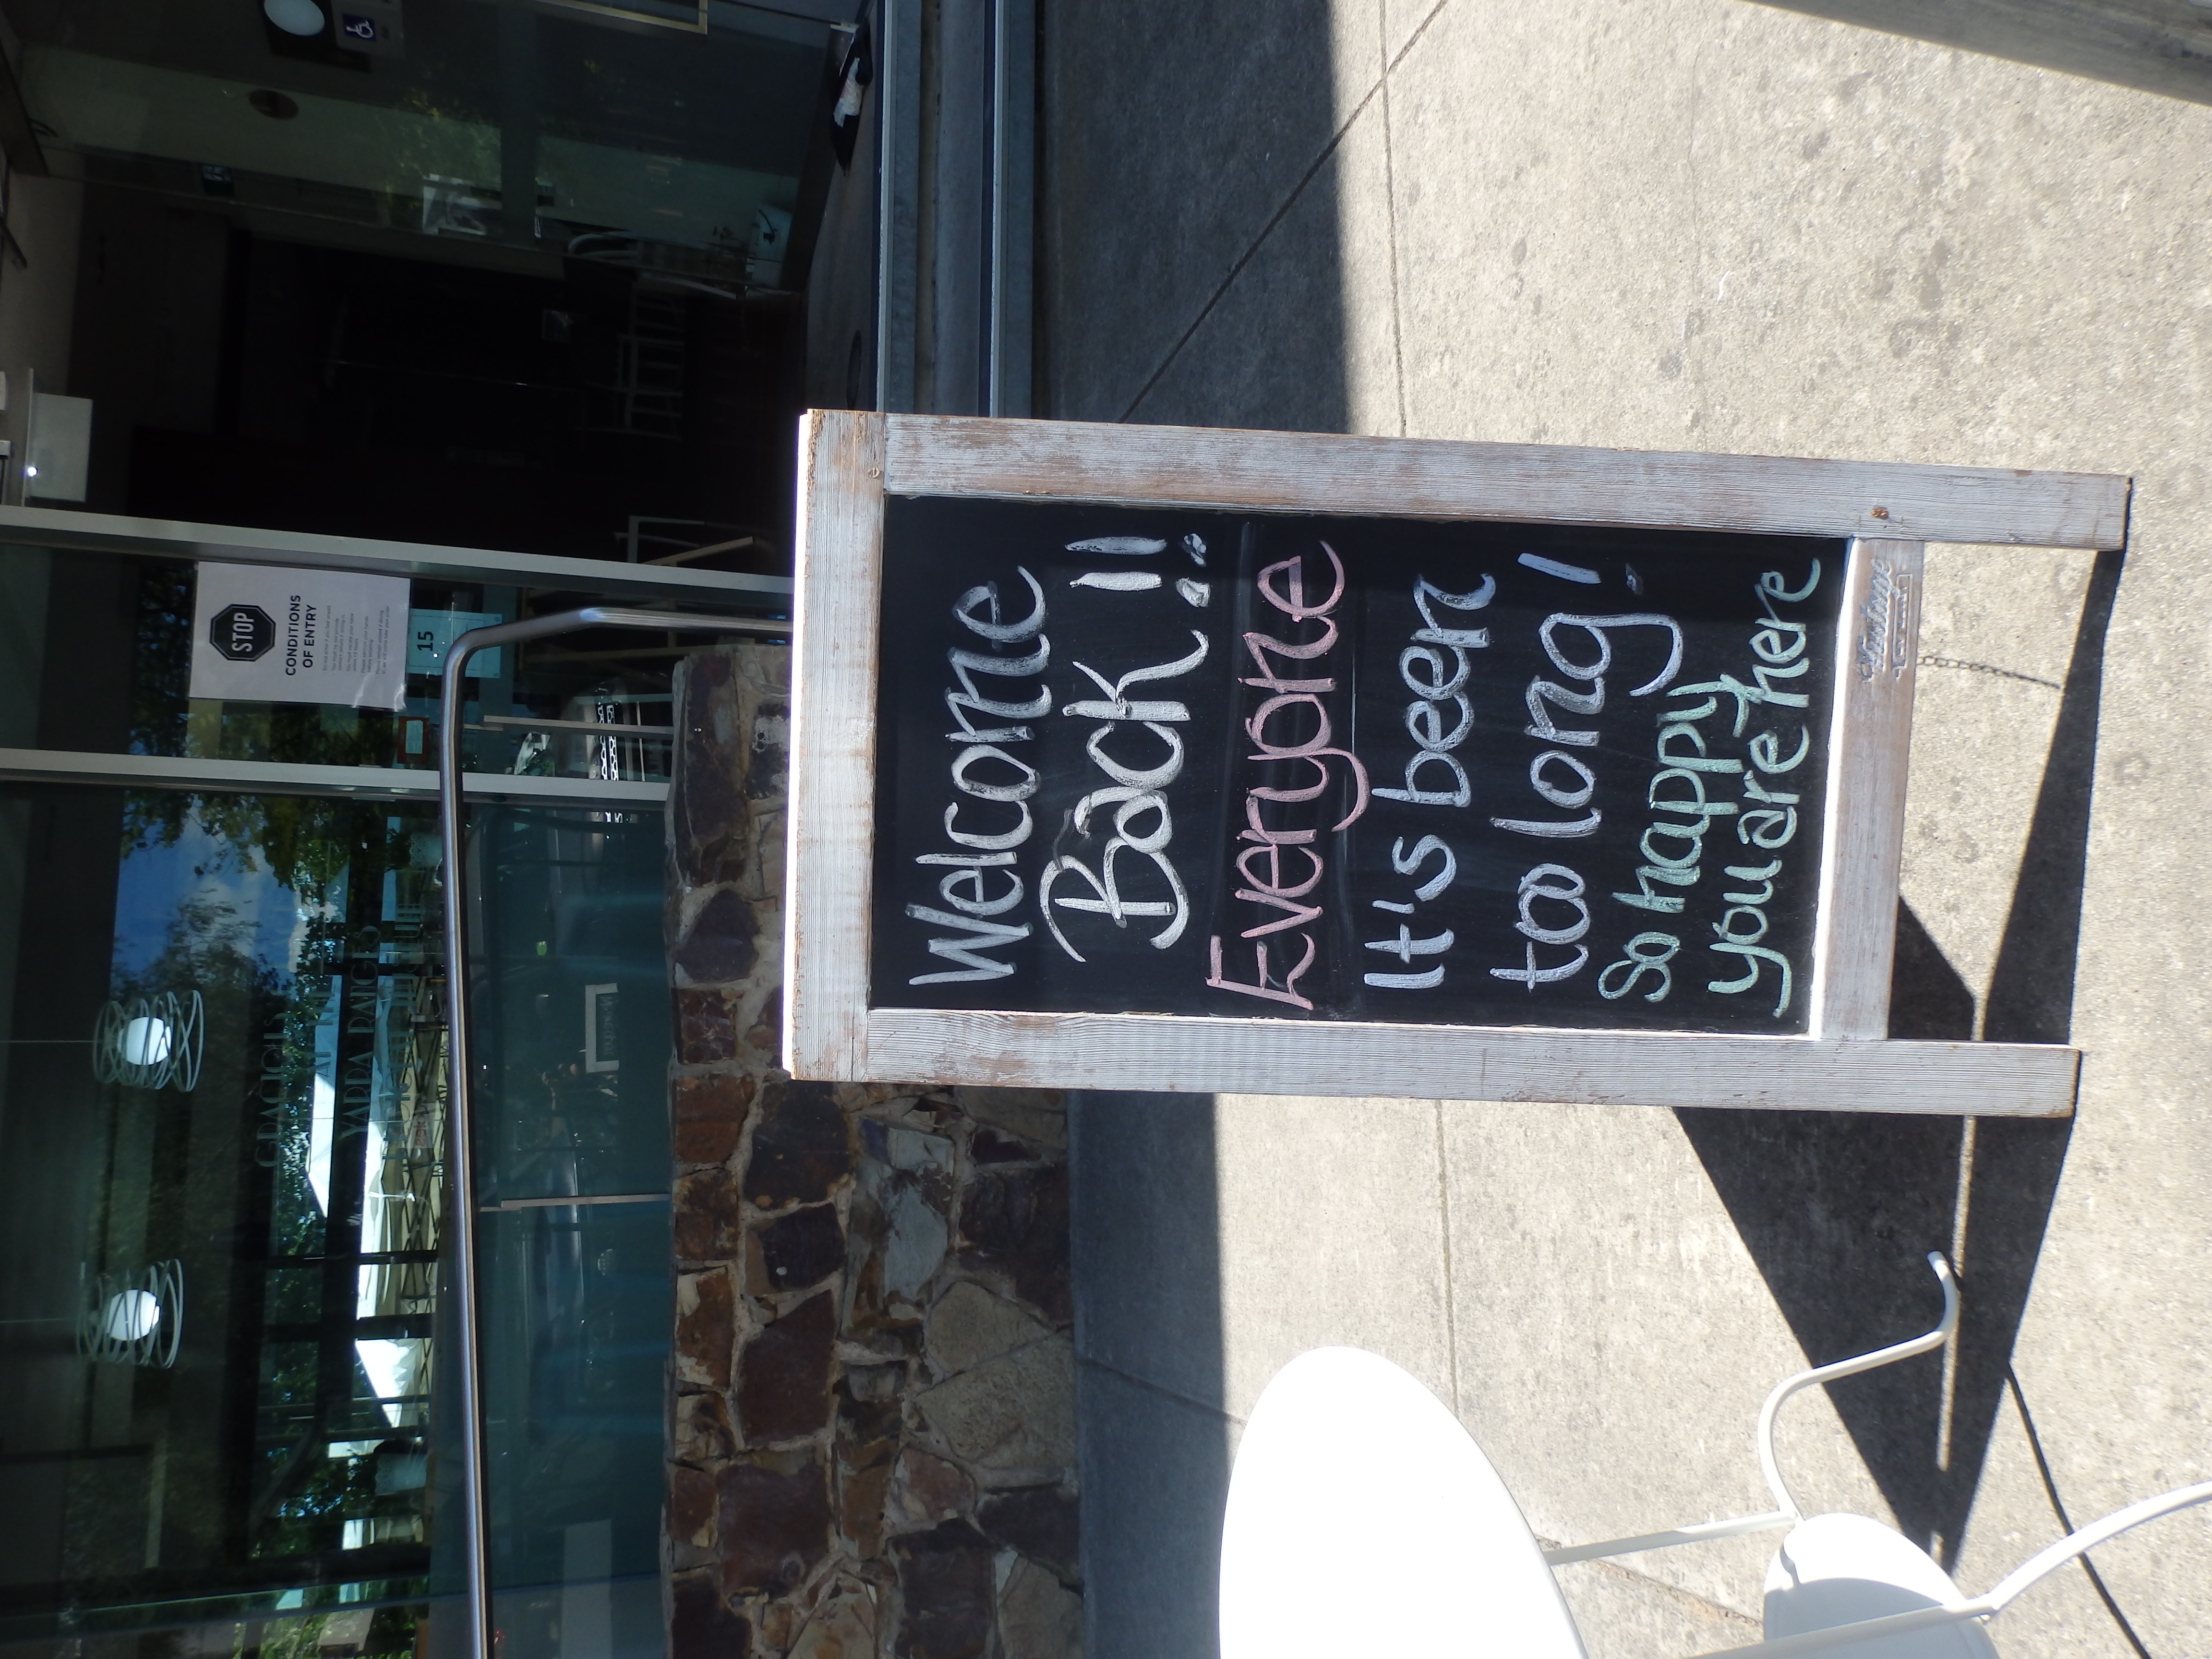 Welcome
Back!!
Everyone
It's been
too long!
So happy
you are here
STOP
CONDITIONS
OF ENTRY
15